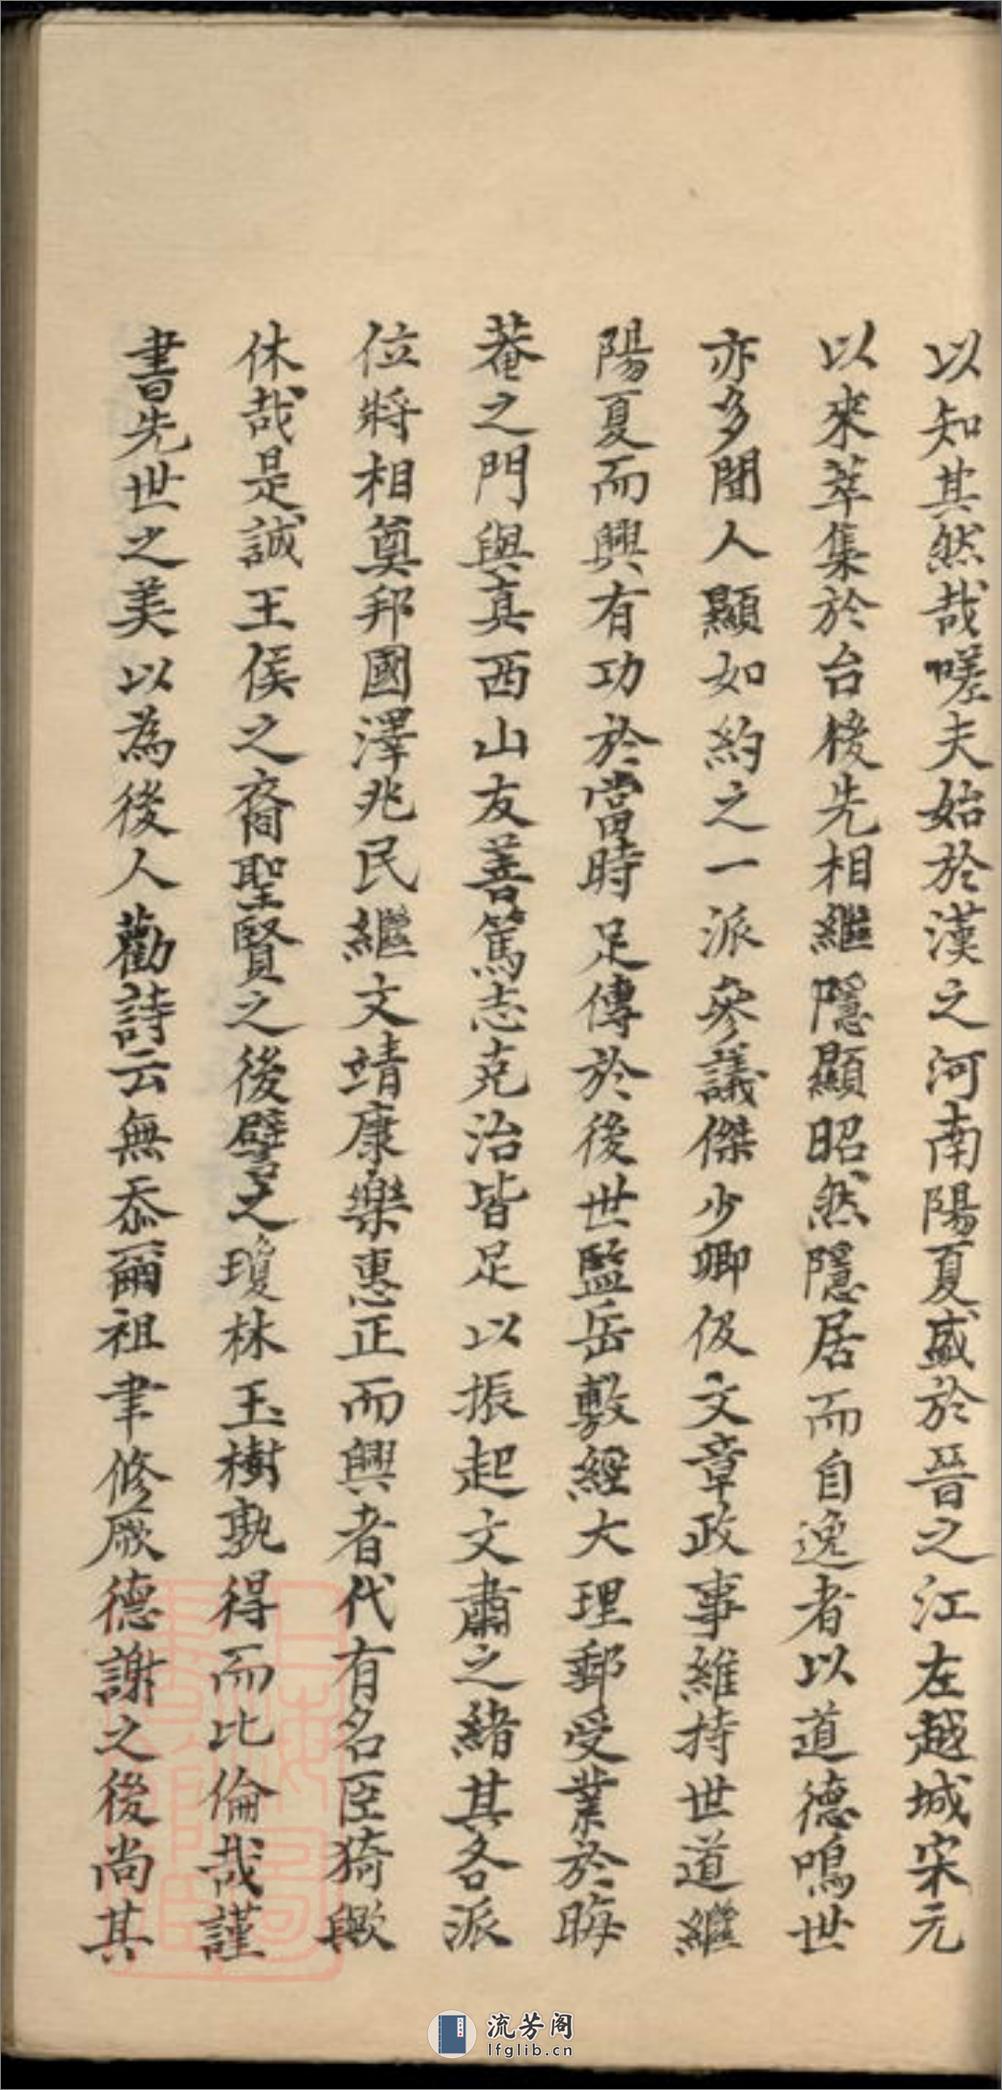 以知其然哉嗟夫始於漢之河南陽夏盛於晉之江左越城宋元
以來萃集於台後先相繼隱顯昭然隱居而自逸者以道德鳴世
亦多聞人顯如約之一派參議傑少卿伋文章政事維持世道繼
陽夏而興有功於當時足傳於後世監岳敷經大理郵受業於晦
菴之門與真西山友善篤志克治皆足以振起文肅之緒其各派
位將相奠邦國澤兆民繼文靖康樂惠正而興者代有名臣猗歟
休哉是誠王侯之裔聖賢之後譬之瓊林玉樹孰得而比倫哉謹
書先世之美以為後人勸詩云無忝爾祖聿修厥德謝之後尚其
流芳阁
lfglib.cn